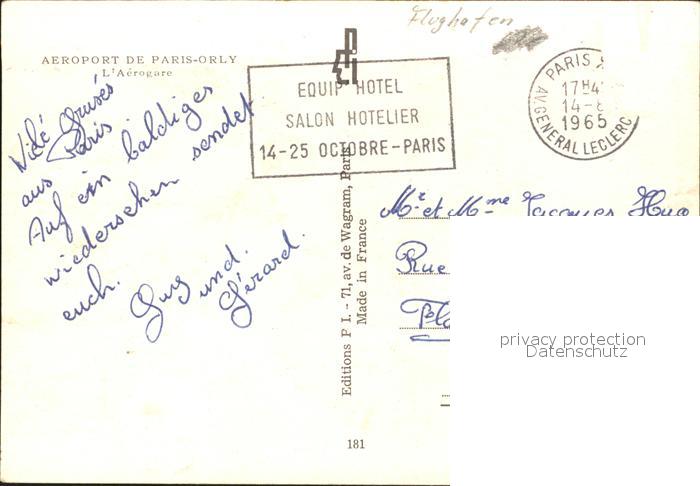 Flughafen
AEROPORT DE PARIS-ORLY
L'Aérogare
EQUIP HOTEL
SALON HOTELIER
14-25 OCTOBRE-PARIS
PARIS X
17H4
14-8
1965
AV.GENERAL LECLERC
Vilé Grusés
aus Paris
Auf ein baldiges
wiederschen sendet
euch.
Guy und.
Gérard.
Editions P I. - 71, av. de Wagram, Paris
Made in France
Mr et Mme Jacques Hug
Rue
181
privacy protection
Datenschutz